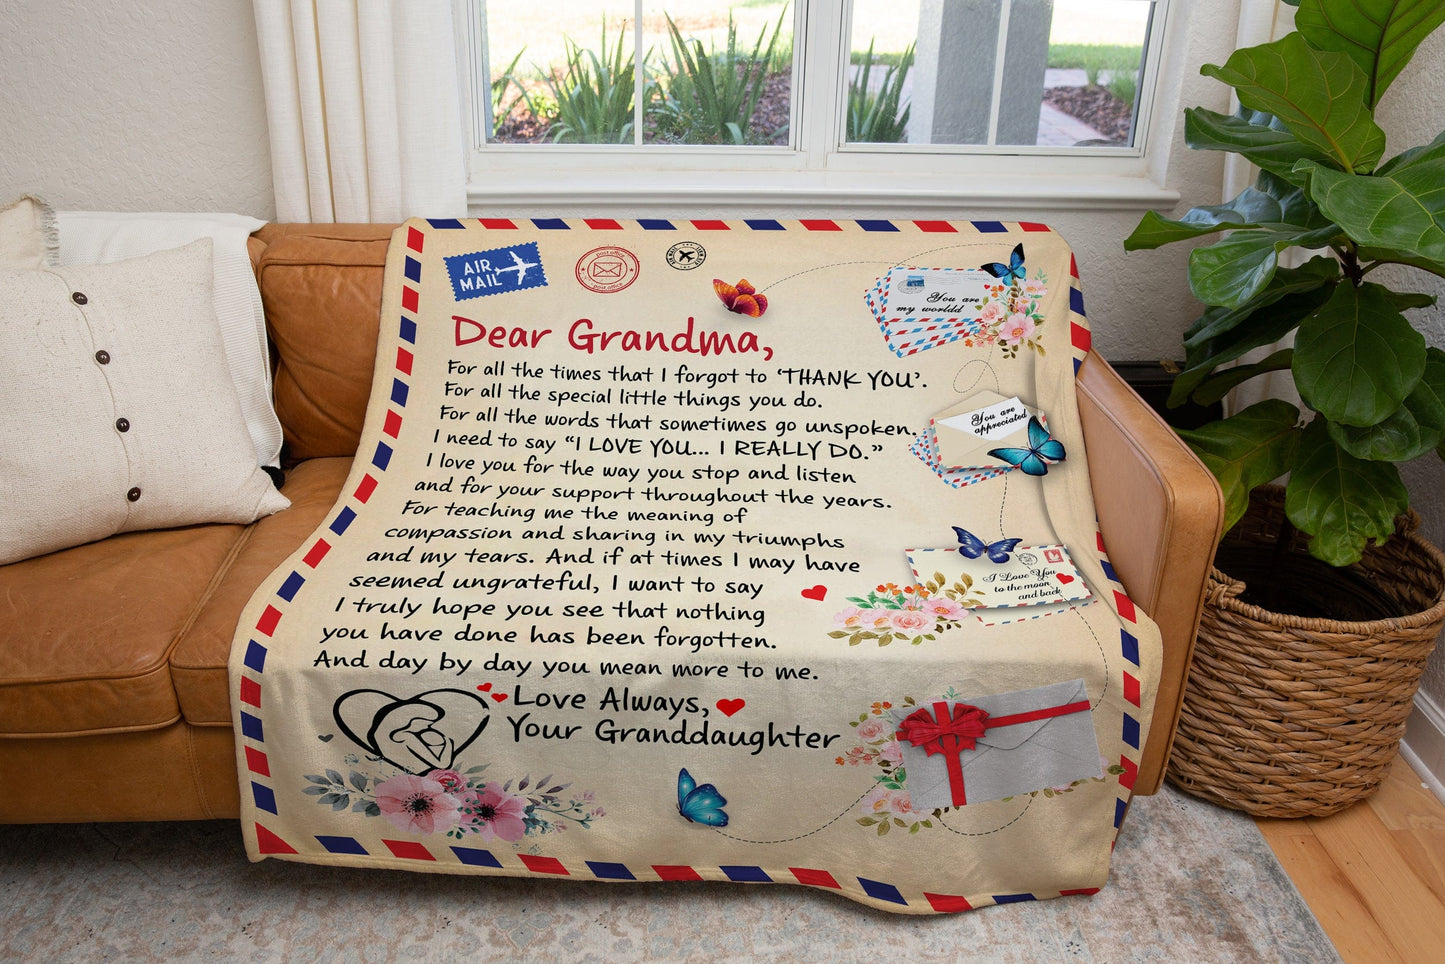 AIR
MAIL
post office
post office
You are
my worldd
Dear Grandma,
For all the times that I forgot to ‘THANK YOU’.
For all the special little things you do.
For all the words that sometimes go unspoken.
I need to say “I LOVE YOU... I REALLY DO.”
I love you for the way you stop and listen
and for your support throughout the years.
For teaching me the meaning of
compassion and sharing in my triumphs
and my tears. And if at times I may have
seemed ungrateful, I want to say
I truly hope you see that nothing
you have done has been forgotten.
And day by day you mean more to me.
Love Always,
Your Granddaughter
You are
appreciated
I Love You
to the moon
and back